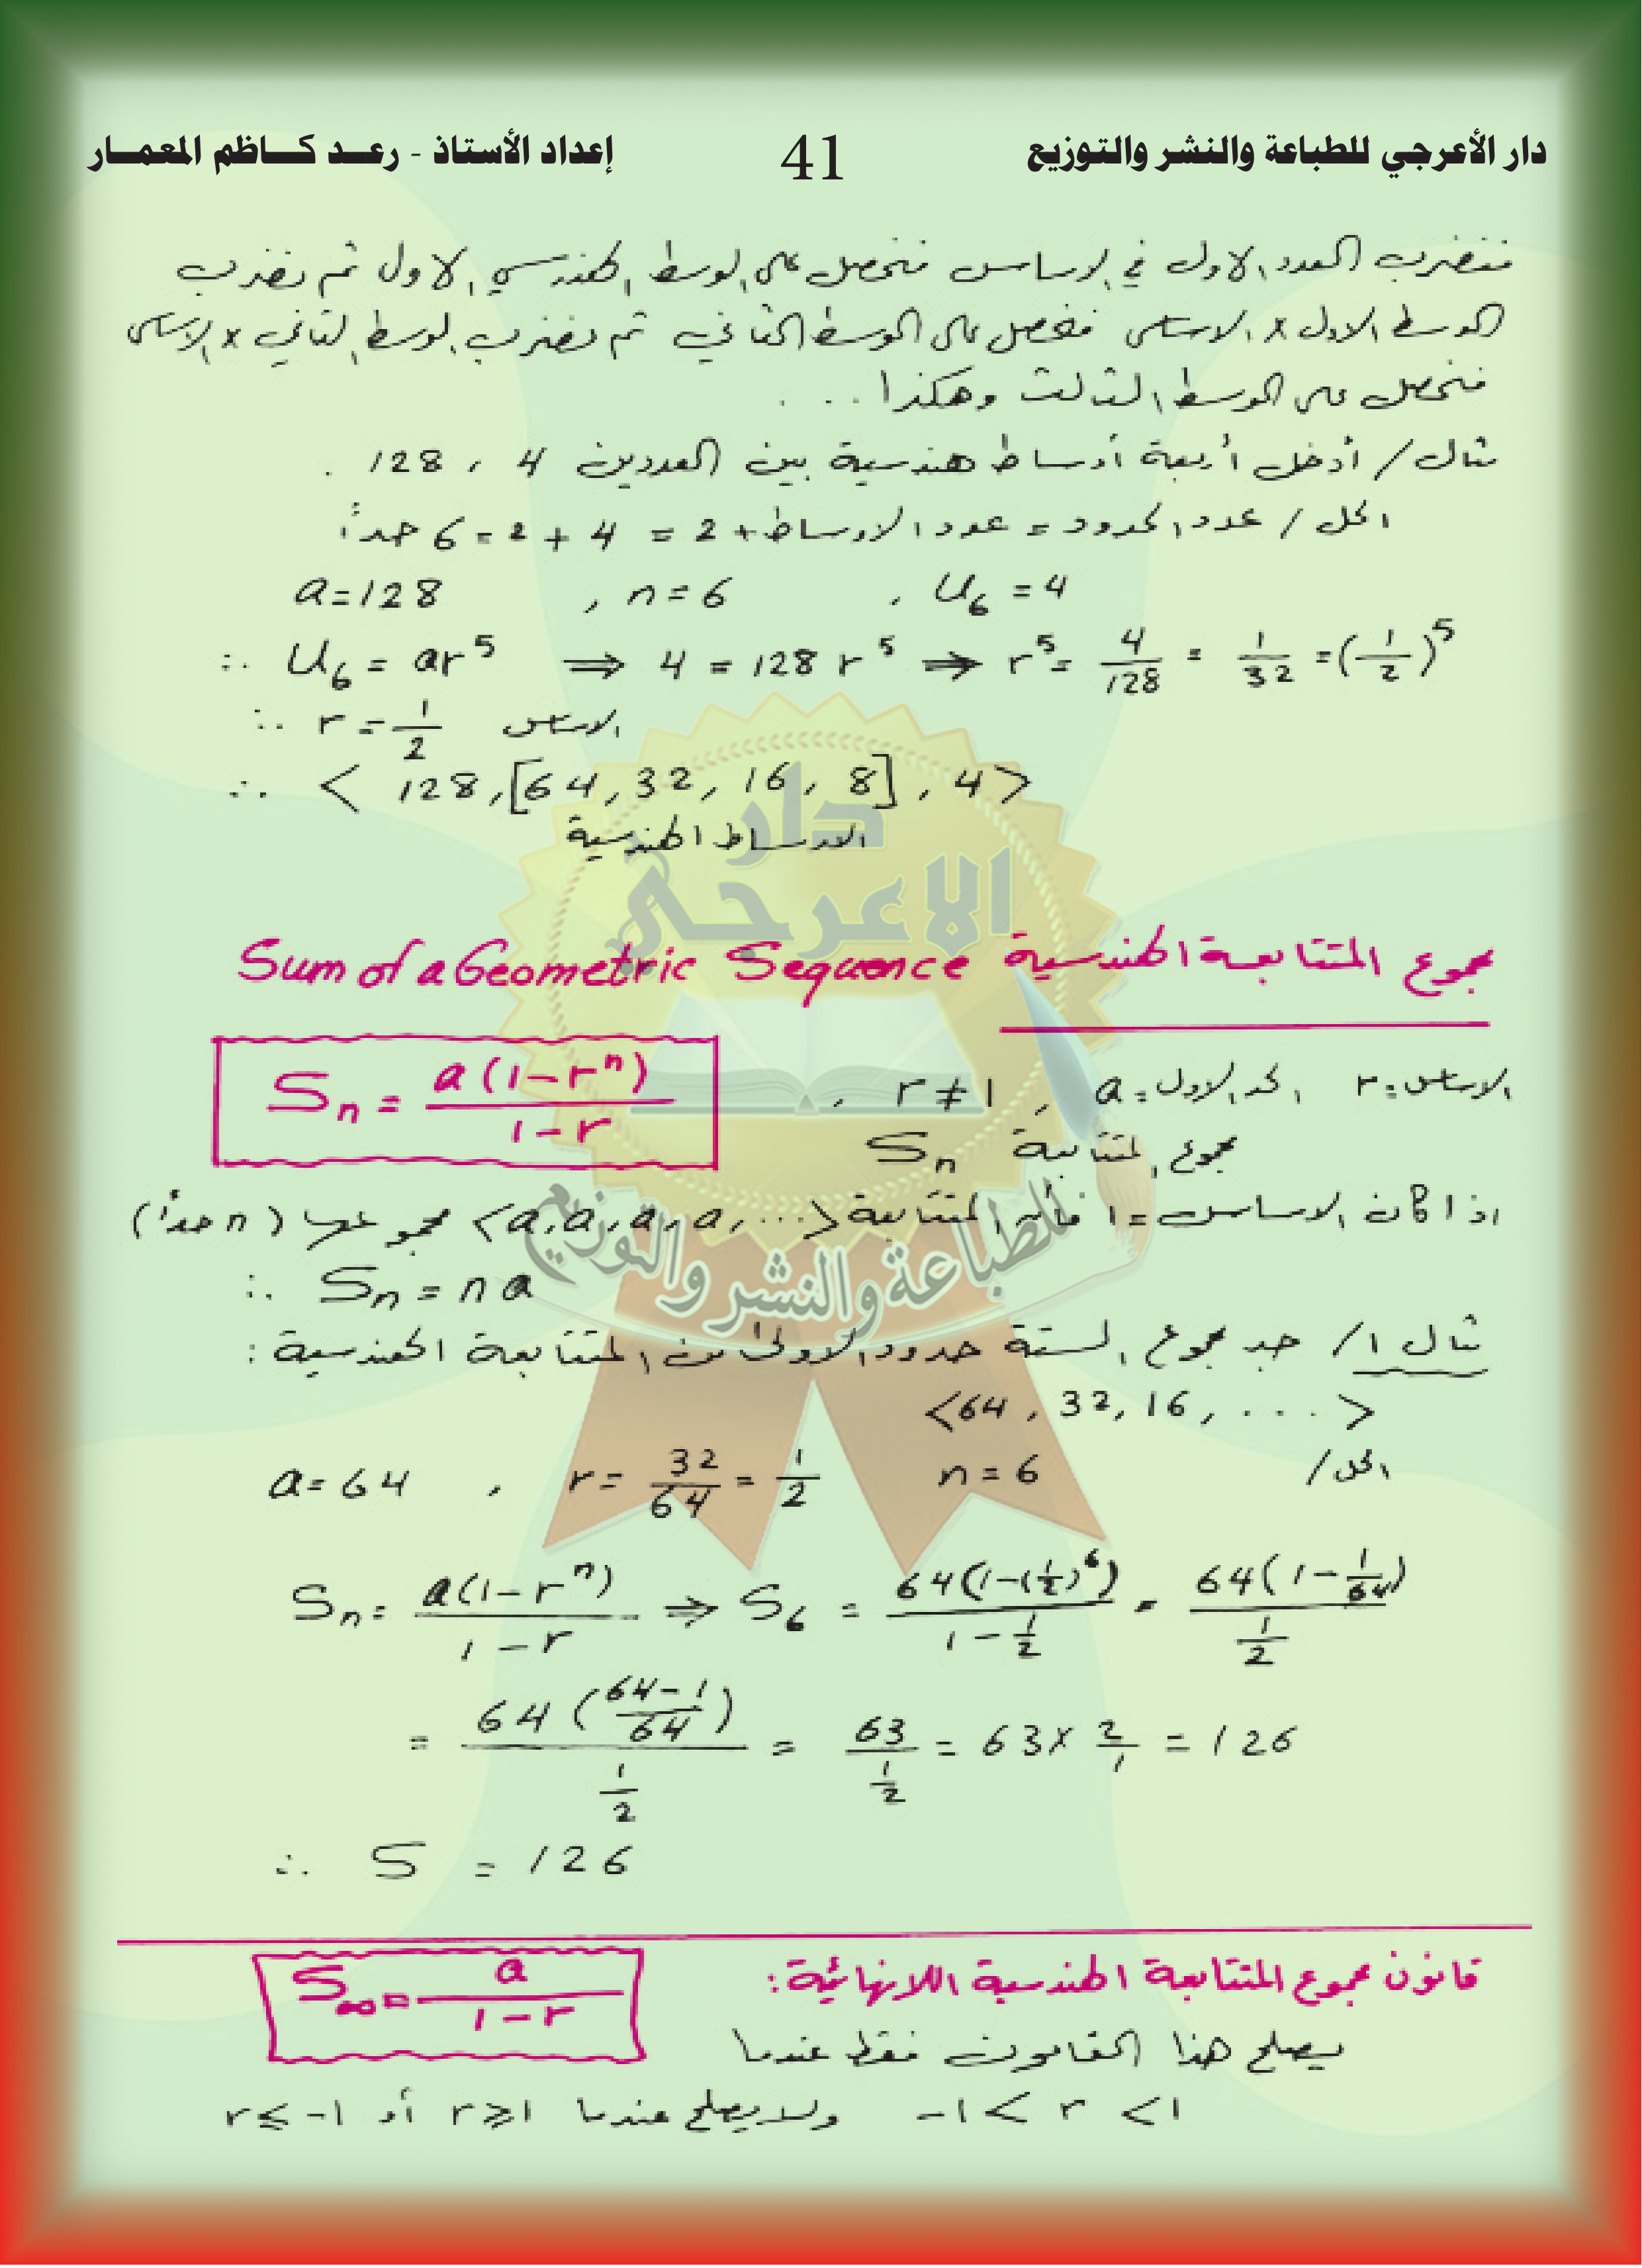 دار الأعرجي للطباعة والنشر والتوزيع 41 إعداد الأستاذ - رعـد كـاظم المعمـار
فنضرب العدد الاول في الاساس فنحصل على الوسط الهندسي الاول ثم نضرب
الوسط الاول × الاساس فنحصل على الوسط الثاني ثم نضرب الوسط الثاني × الاساس
فنحصل على الوسط الثالث وهكذا ...
مثال / أدخل أربعة أوساط هندسية بين العددين 4 ، 128 .
الحل / عدد الحدود = عدد الاوساط + 2 = 4 + 2 = 6 حداً
a = 128 , n = 6 , U₆ = 4
∴ U₆ = ar⁵ ⇒ 4 = 128 r⁵ ⇒ r⁵ = 4/128 = 1/32 = (1/2)⁵
∴ r = 1/2 الاساس
∴ < 128, [64, 32, 16, 8], 4 >
الاوساط الهندسية
دار
الاعرجي
مجموع المتتابعة الهندسية Sum of a Geometric Sequence
الاساس = r الحد الاول = a , r ≠ 1 , Sₙ = a(1-rⁿ)/1-r
مجموع المتتابعة Sₙ
للطباعة والنشر والتوزيع
اذا كان الاساس = 1 فأن المتتابعة <a, a, a, a, ...> مجموعها (n حداً)
∴ Sₙ = n a
مثال 1/ جد مجموع الستة حدود الاولى من المتتابعة الهندسية :
<64, 32, 16, ...>
الحل / a = 64 , r = 32/64 = 1/2 n = 6
Sₙ = a(1-rⁿ)/1-r ⇒ S₆ = 64(1-(1/2)⁶)/1-1/2 = 64(1-1/64)/(1/2)
= 64(64-1/64)/(1/2) = 63/(1/2) = 63 × 2/1 = 126
∴ S = 126
قانون مجموع المتتابعة الهندسية اللانهائية : S∞ = a/1-r
يصلح هذا القانون فقط عندما
-1 < r < 1 ولا يصلح عندما r ⩾ 1 أو r ⩽ -1